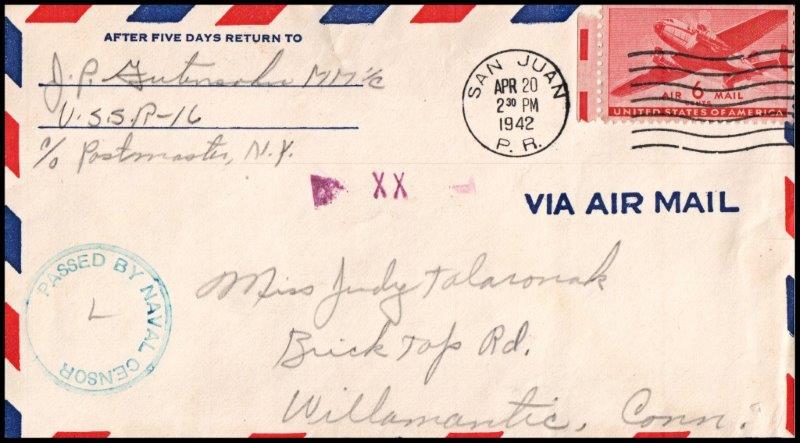 AFTER FIVE DAYS RETURN TO
J. P. Gutensohn MM1/c
U.S.S. R-16
c/o Postmaster, N.Y.
SAN JUAN
APR 20
2 30 PM
1942
P. R.
AIR 6 MAIL
CENTS
UNITED STATES OF AMERICA
XX
VIA AIR MAIL
PASSED BY NAVAL CENSOR
L
Miss Judy
Brick Top Rd.
Willamantic, Conn.